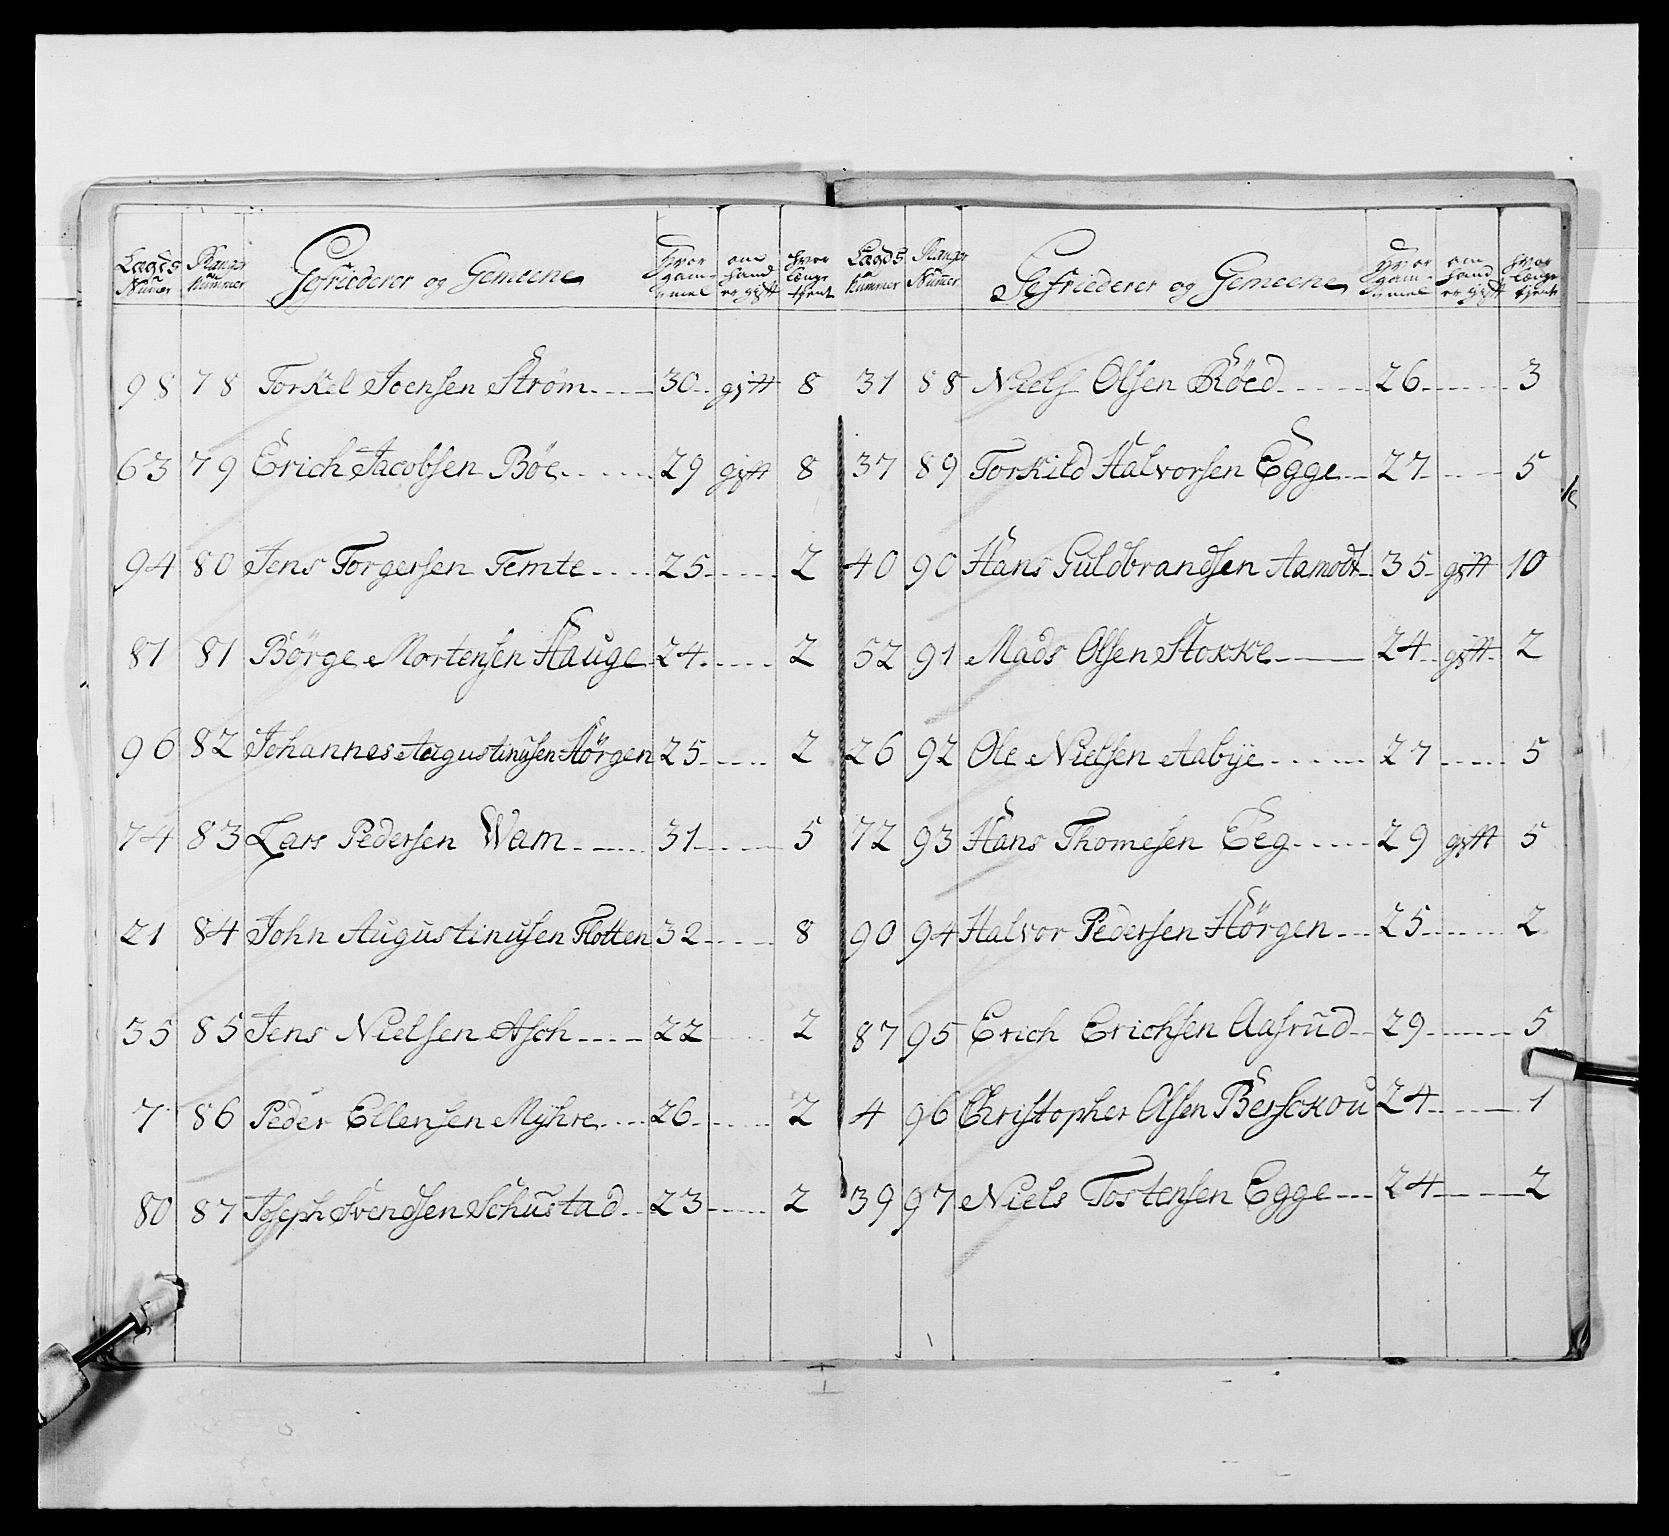 Lægds Numer | Range Nummer | Gefriederer og Gemeene | Hvor gammel | om hand er gift | hvor længe tient
98 | 78 | Torkel Joensen Strøm | 30 | gift | 8
63 | 79 | Erich Jacobsen Böe | 29 | gift | 8
94 | 80 | Jens Torgersen Temte | 25 | | 2
87 | 81 | Börge Mortensen Hauge | 24 | | 2
96 | 82 | Johannes Augustinusen Hörgen | 25 | | 2
74 | 83 | Lars Pedersen Wam | 31 | | 5
21 | 84 | John Augustinusen Flotten | 32 | | 8
55 | 85 | Jens Nielsen Asch | 22 | | 2
7 | 86 | Peder Ellensen Myhre | 26 | | 2
80 | 87 | Joseph Svendsen Schustad | 23 | | 2
Lægds Nummer | Range Numer | Gefriederer og Gemeene | Hvor gammel | om hand er gift | hvor længe tient
31 | 88 | Niels Olsen Röed | 26 | | 3
37 | 89 | Torkild Halvorsen Egge | 27 | | 5
40 | 90 | Hans Guldbrandsen Aamodt | 35 | gift | 10
52 | 91 | Mads Olsen Stokke | 24 | gift | 2
26 | 92 | Ole Nielsen Aabye | 27 | | 5
72 | 93 | Hans Thomesen Eeg | 29 | gift | 5
90 | 94 | Halvor Pedersen Hörgen | 25 | | 2
87 | 95 | Erich Erichsen Aasrud | 29 | | 5
4 | 96 | Christopher Olsen Berskou | 24 | | 1
39 | 97 | Niels Tostensen Egge | 24 | | 2